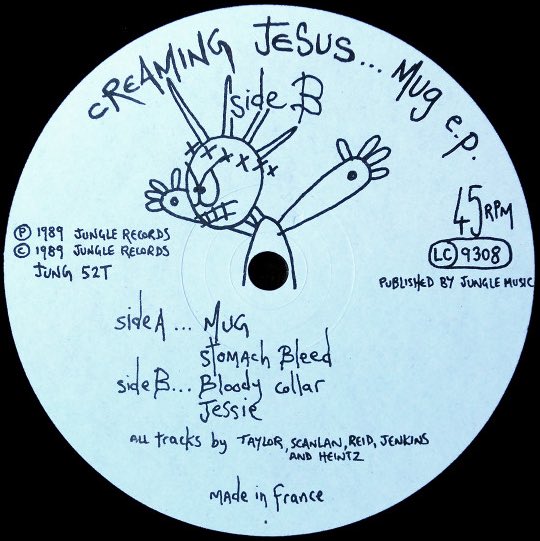 CREAMING JESUS... MUG e.p.
side B
45 RPM
℗ 1989 JUNGLE RECORDS
© 1989 JUNGLE RECORDS
JUNG 52T
LC 9308
PUBLISHED BY JUNGLE MUSIC
side A... MUG
Stomach Bleed
side B... Bloody collar
Jessie
ALL tracks by TAYLOR, SCANLAN, REID, JENKINS
AND HEINTZ
Made in France